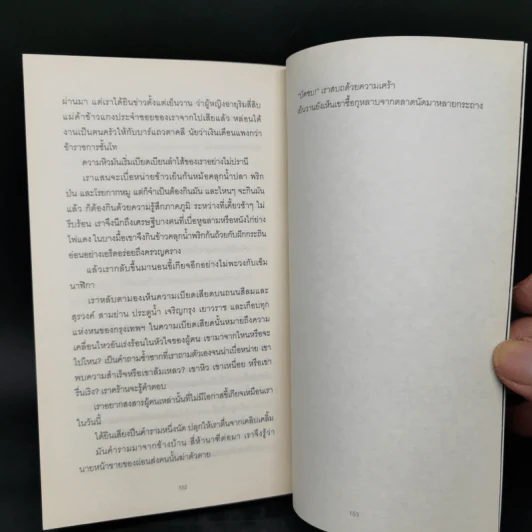 ผ่านมา แต่เราได้ยินข่าวตั้งแต่เย็นวาน ว่าผู้หญิงอายุริมสี่สิบ
แม่ค้าข้าวแกงประจำซอยของเราจากไปเสียแล้ว หล่อนได้
งานเป็นคนครัวให้กับบาร์แถวตาคลี นัยว่าเงินเดือนแพงกว่า
ข้าราชการชั้นโท
ความหิวมันเริ่มเบียดเบียนลำไส้ของเราอย่างไม่ปรานี
เราแสนจะเบื่อหน่ายข้าวเย็นก้นหม้อคลุกน้ำปลา พริก
ป่น และโรยกากหมู แต่ก็จำเป็นต้องกินมัน และไหนๆ จะกินมัน
แล้ว ก็ต้องกินด้วยความรู้สึกภาคภูมิ ระหว่างที่เคี้ยวช้าๆ ไม่
รีบร้อน เราจึงนึกถึงเศรษฐีบางคนที่เบื่อหูฉลามหรือหนังไก่งวง
ไฟแดง ในบางมื้อเขาจึงกินข้าวคลุกน้ำพริกก้นถ้วยกับฝักกระถิน
อ่อนอย่างเอร็ดอร่อยถึงครวญคราง
แล้วเรากลับขึ้นมานอนขี้เกียจอีกอย่างไม่พะวงกับเข็ม
นาฬิกา
เราหลับตามองเห็นความเบียดเสียดบนถนนสีลมและ
สุรวงศ์ สามย่าน ประตูน้ำ เจริญกรุง เยาวราช และเกือบทุก
แห่งหนของกรุงเทพฯ ในความเบียดเสียดนั้นหมายถึงความ
เคลื่อนไหวอันเร่งร้อนในหัวใจของผู้คน เขามาจากไหนหรือจะ
ไปไหน? เป็นคำถามซ้ำซากที่เราถามตัวเองจนน่าเบื่อหน่าย เขา
พบความสำเร็จหรือเขาล้มเหลว? เขาหิว เขาเหนื่อย หรือเขา
รื่นเริง? เราคร้านจะรู้คำตอบ
เราอยากสงสารผู้คนเหล่านั้นที่ไม่มีโอกาสขี้เกียจเหมือนเรา
ในวันนี้
ได้ยินเสียงปืนคำรามหนึ่งนัด ปลุกให้เราตื่นจากเคลิบเคลิ้ม
มันคำรามมาจากข้างบ้าน สี่ห้านาทีต่อมา เราจึงรู้ว่า
นายหน้าขายของผ่อนส่งคนนั้นฆ่าตัวตาย
102
"บัดซบ!" เราสบถด้วยความเศร้า
เย็นวานยังเห็นเขาซื้อกุหลาบจากตลาดนัดมาหลายกระถาง
103